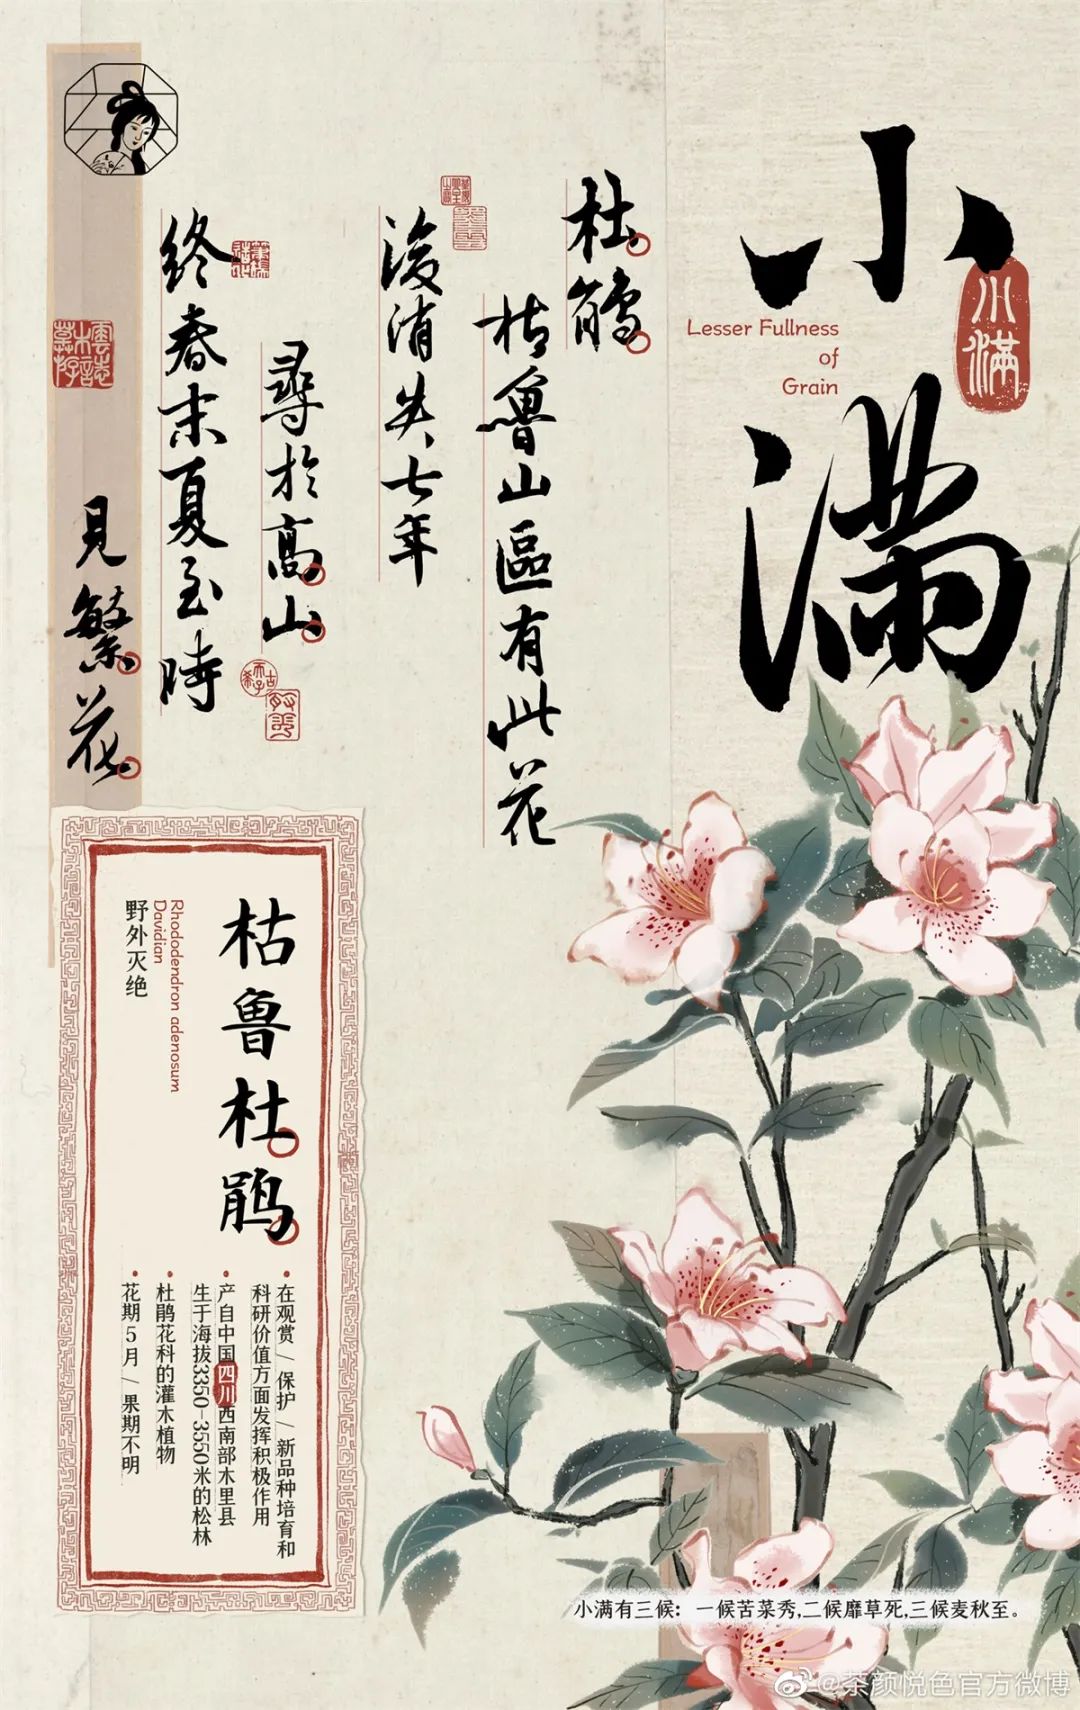 小满
小滿
Lesser Fullness
of
Grain
杜鵑
枯魯山區有此花
後消失七年
尋於高山
終春末夏至時
見繁花
枯鲁杜鹃
Rhododendron adenosum
Davidian
野外灭绝
• 在观赏 / 保护 / 新品种培育和
科研价值方面发挥积极作用
• 产自中国四川西南部木里县
生于海拔3350-3550米的松林
• 杜鹃花科的灌木植物
• 花期5月 / 果期不明
小满有三候：一候苦菜秀,二候靡草死,三候麦秋至。
@茶颜悦色官方微博